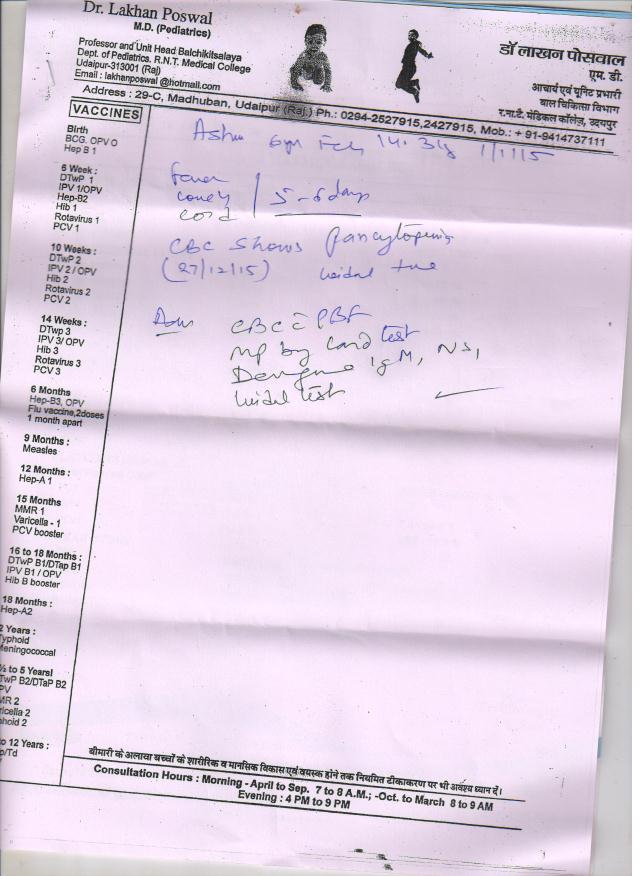 Dr. Lakhan Poswal
M.D. (Pediatrics)
Professor and Unit Head Balchikitsalaya
Dept. of Pediatrics, R.N.T. Medical College
Udaipur-313001 (Raj)
Email : lakhanposwal @hotmail.com
डॉ लाखन पोसवाल
एम. डी.
आचार्य एवं यूनिट प्रभारी
बाल चिकित्सा विभाग
र.ना.टै. मेडिकल कॉलेज, उदयपुर
Address : 29-C, Madhuban, Udaipur (Raj.) Ph.: 0294-2527915,2427915, Mob.: + 91-9414737111
VACCINES
Birth
BCG, OPV O
Hep B 1
6 Week :
DTwP 1
IPV 1/OPV
Hep-B2
Hib 1
Rotavirus 1
PCV 1
10 Weeks :
DTwP 2
IPV 2 / OPV
Hib 2
Rotavirus 2
PCV 2
14 Weeks :
DTwp 3
IPV 3/ OPV
Hib 3
Rotavirus 3
PCV 3
6 Months
Hep-B3, OPV
Flu vaccine,2doses
1 month apart
9 Months :
Measles
12 Months :
Hep-A 1
15 Months
MMR 1
Varicella - 1
PCV booster
16 to 18 Months :
DTwP B1/DTap B1
IPV B1 / OPV
Hib B booster
18 Months :
Hep-A2
2 Years :
Typhoid
Meningococcal
½ to 5 Years!
TwP B2/DTaP B2
PV
MR 2
ricella 2
phoid 2
to 12 Years :
p/Td
6yr 14. 3
fever
5-6 days
cold
CBC Shows Pancytopenia
(27/12/15) widal +ve
Adv
CBC c PBF
MP by Card test
Dengue IgM, NS1
widal test
बीमारी के अलावा बच्चों के शारीरिक व मानसिक विकास एवं वयस्क होने तक नियमित टीकाकरण पर भी अवश्य ध्यान दें।
Consultation Hours : Morning - April to Sep. 7 to 8 A.M.; -Oct. to March 8 to 9 AM
Evening : 4 PM to 9 PM